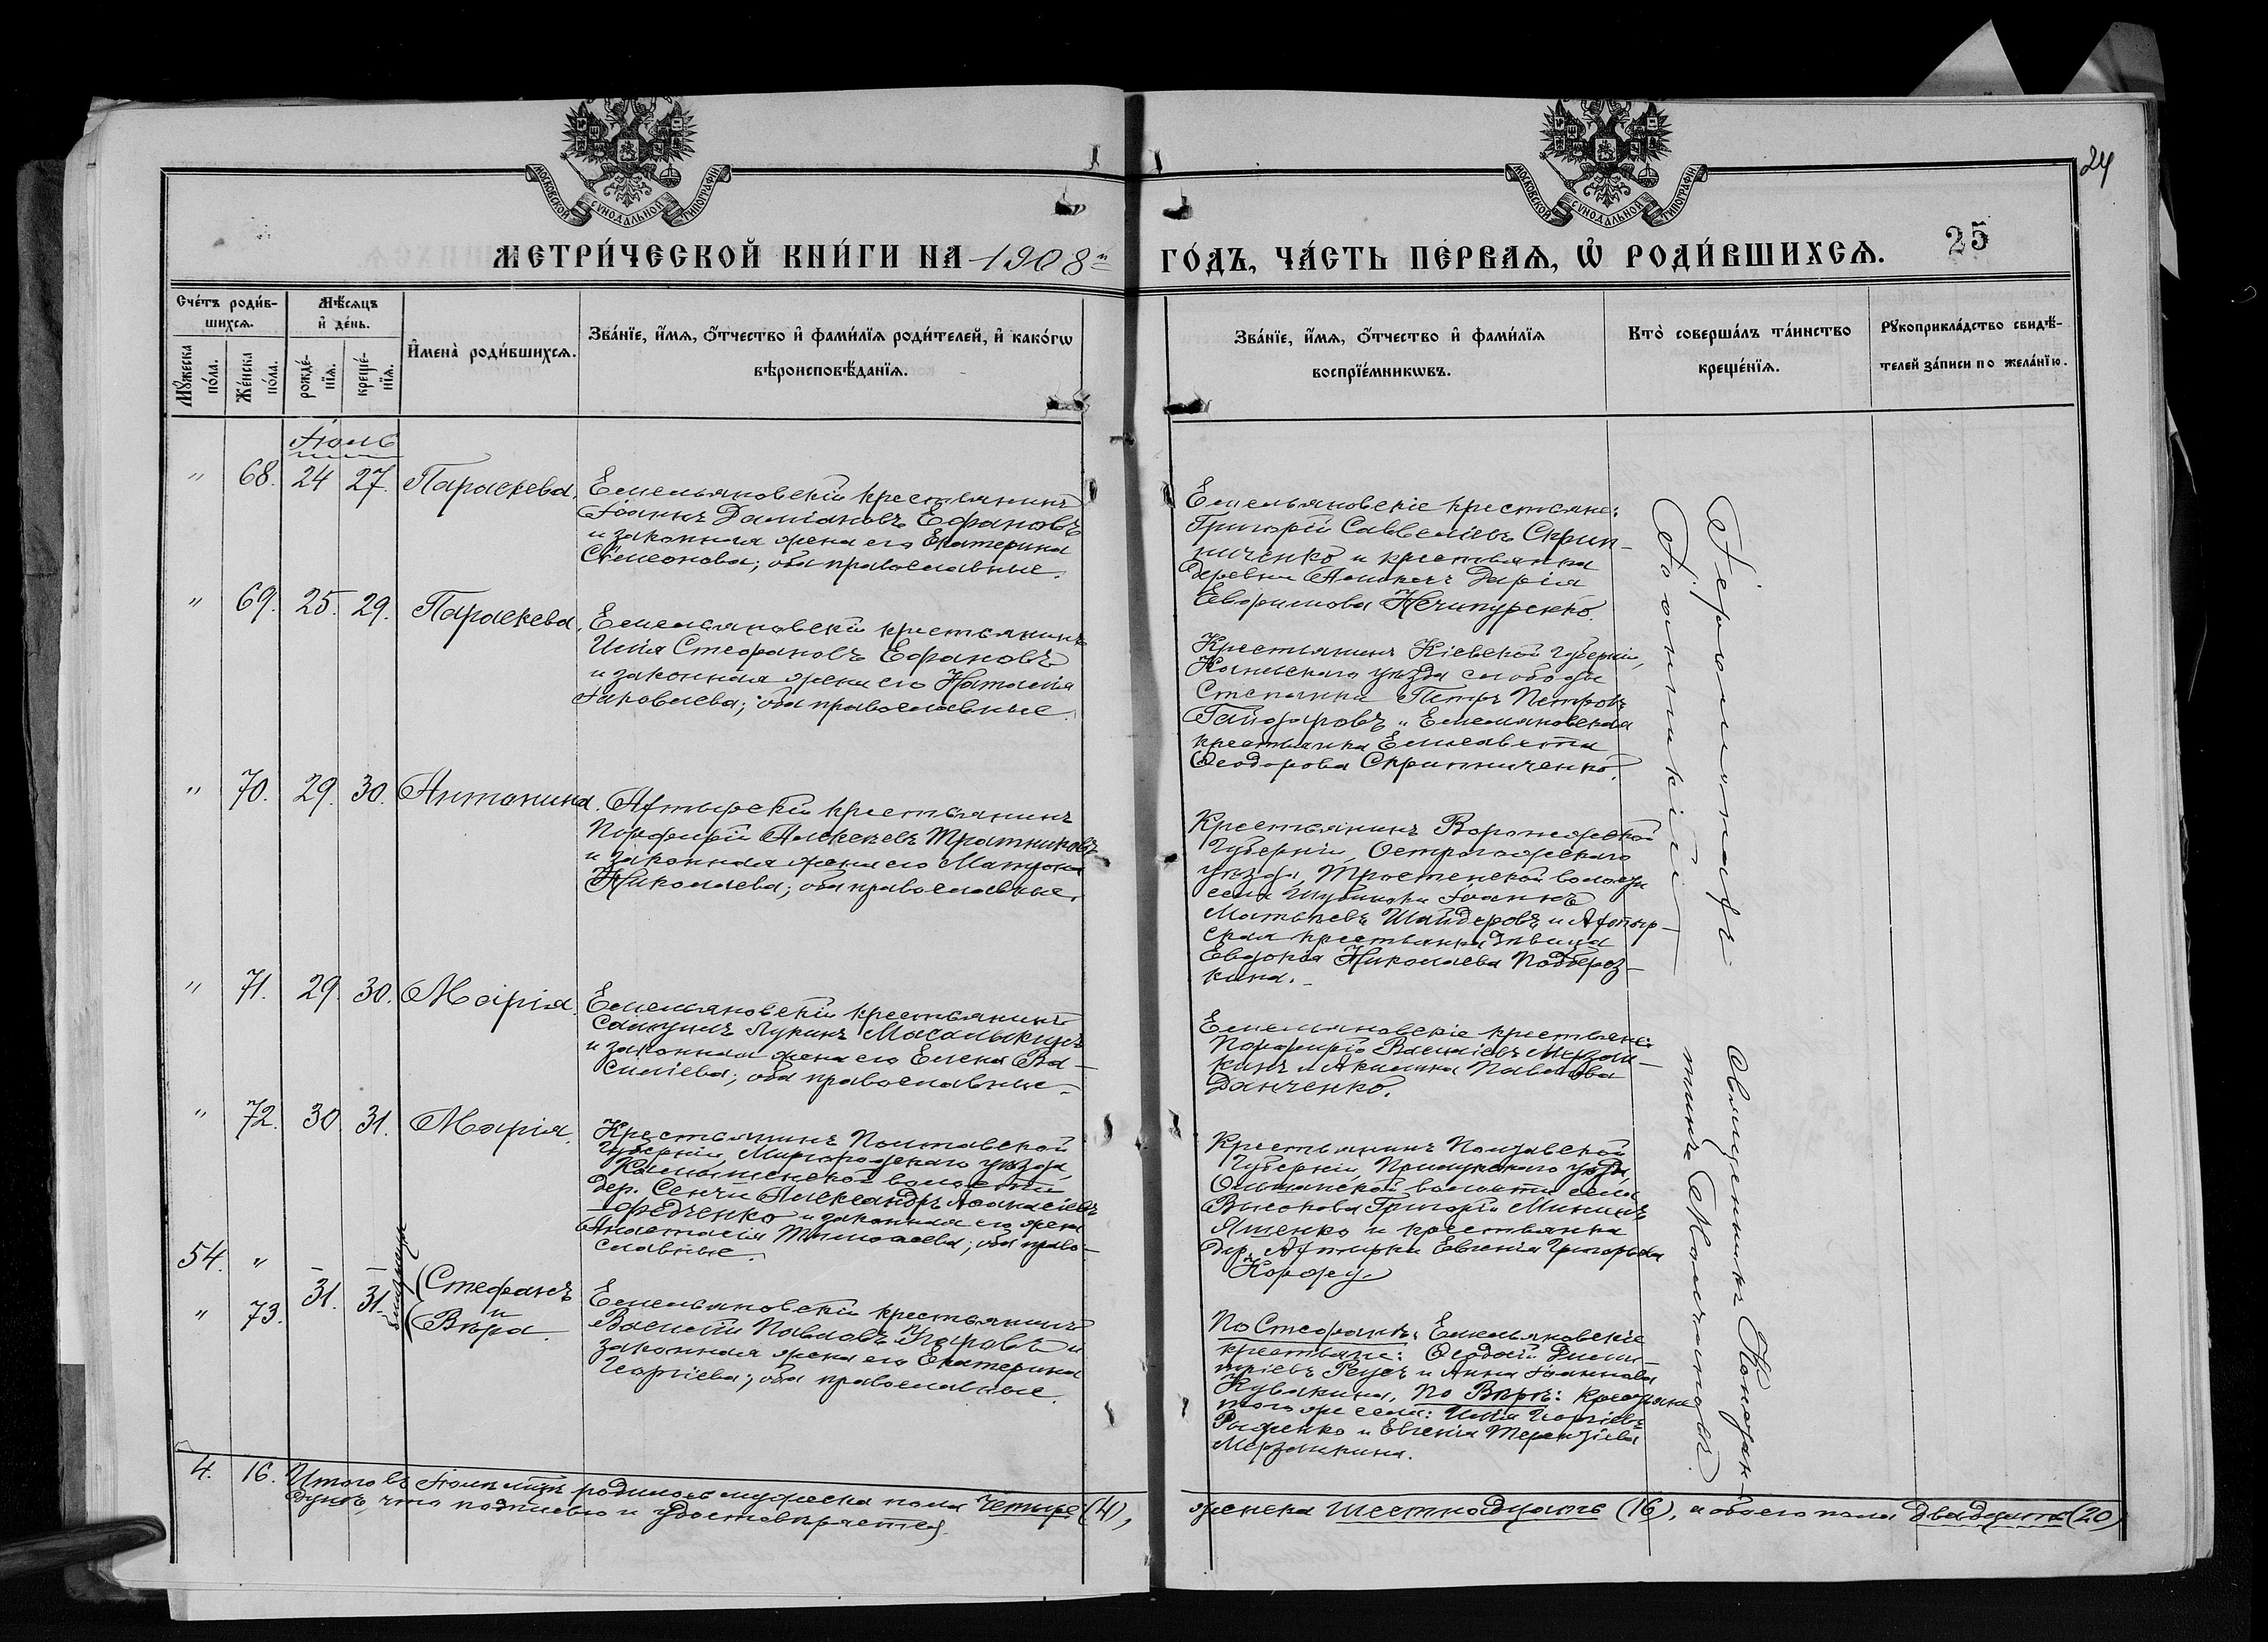 24
МОСКОВСКОЙ СѴНОДАЛЬНОЙ ТИПОГРАФІИ
МОСКОВСКОЙ СѴНОДАЛЬНОЙ ТИПОГРАФІИ
МЕТРИ́ЧЕСКОЙ КНИ́ГИ НА 1908й
ГО́ДЪ, ЧА́СТЬ ПЕ́РВАѦ, Ѡ҆ РОДИ́ВШИХСѦ. 25
Сче́тъ роди́в-
шихсѧ.
Мꙋ́жеска по́ла.
Же́нска по́ла.
Мѣ́сѧцъ
и҆ де́нь.
рожде́-
нїѧ.
креще́-
нїѧ.
И҆мена̀ роди́вшихсѧ.
Зва́нїе, и҆́мѧ, ѻ҆́тчество и҆ фами́лїѧ роди́телей, и҆ како́гѡ
вѣроисповѣ́данїѧ.
Зва́нїе, и҆́мѧ, ѻ҆́тчество и҆ фами́лїѧ
воспрїе́мникѡвъ.
Кто̀ соверша́лъ та́инство
креще́нїѧ.
Рꙋкоприкла́дство свидѣ́-
телей за́писи по жела́нїю.
Іюль
" 68. 24 27. Параскева.
Емельяновскій крестьянинъ
Іоаннъ Даміановъ Ефановъ
и законная жена его Екатерина
Сѵмеонова; оба православные.
Емельяновскіе крестьяне:
Григорій Саввеліевъ Скрип-
ниченко и крестьянка
деревни Дарія
Евфимова Нечипуренко.
" 69. 25. 29. Параскева.
Емельяновскій крестьянинъ
Илія Стефановъ Ефановъ
и законная жена его Наталія
Іаковлева; оба православные.
Крестьянинъ Кіевской губерніи,
Каневскаго уѣзда слободы
Степанки Петръ Петровъ
и Емельяновская
крестьянка Елисавета
Ѳеодорова Скрипниченко.
" 70. 29. 30. Антонина.
Ахтырскій крестьянинъ
Порфирій Алексѣевъ Тратниковъ
и законная жена его Матрона
Николаева; оба православные.
Крестьянинъ Воронежской
губерніи, Острогожскаго
уѣзда, Тростенской волости
села Іоаннъ
Матвѣевъ Шайдеровъ и Ахтыр-
ская крестьянка дѣвица
Евдокія Николаева Подберез-
кина.
" 71. 29. 30. Марія.
Емельяновскій крестьянинъ
Самуилъ Лукинъ Масалыкинъ
и законная жена его Елена Ва-
силіева; оба православные.
Емельяновскіе крестьяне:
Порфирій Василіевъ Мерзли-
кинъ и Акилина Павлова
Данченко.
" 72. 30. 31. Марія.
Крестьянинъ Полтавской
губерніи, Миргородскаго уѣзда,
Камышенской волости
дер. Сенчи Александръ Аѳанасіевъ
и законная его жена
Анастасія Тимоѳеева; оба право-
славные.
Крестьянинъ Полтавской
губерніи, Прилукскаго уѣзда,
Ольшанской волости села
Высокова Григорій Мининъ
Яшенко и крестьянка
дер. Ахтырки Евгенія Григорьева
Коржу.
54. "
" 73. 31. 31. близнецы Стефанъ
и
Вѣра.
Емельяновскій крестьянинъ
Василій Павловъ Угаровъ и
законная жена его Екатерина
Георгіева; оба православные.
По Стефанѣ: Емельяновскіе
крестьяне: Ѳеодосій Дими-
тріевъ Реусъ и Анна Іоаннова
Кувакина, По Вѣрѣ: крестьяне
того же села: Илія Георгіевъ
Рыженко и Евгенія Терентіева
Мерзликина.
Іеромонахъ
Іоанникій
Священникъ Константинъ
4. 16. Итого въ Іюлѣ мѣсяцѣ родилось мужеска пола Четыре (4),
женска Шестнадцать (16), и обоего пола двадцать (20)
душъ, что подписью и удостовѣряется.